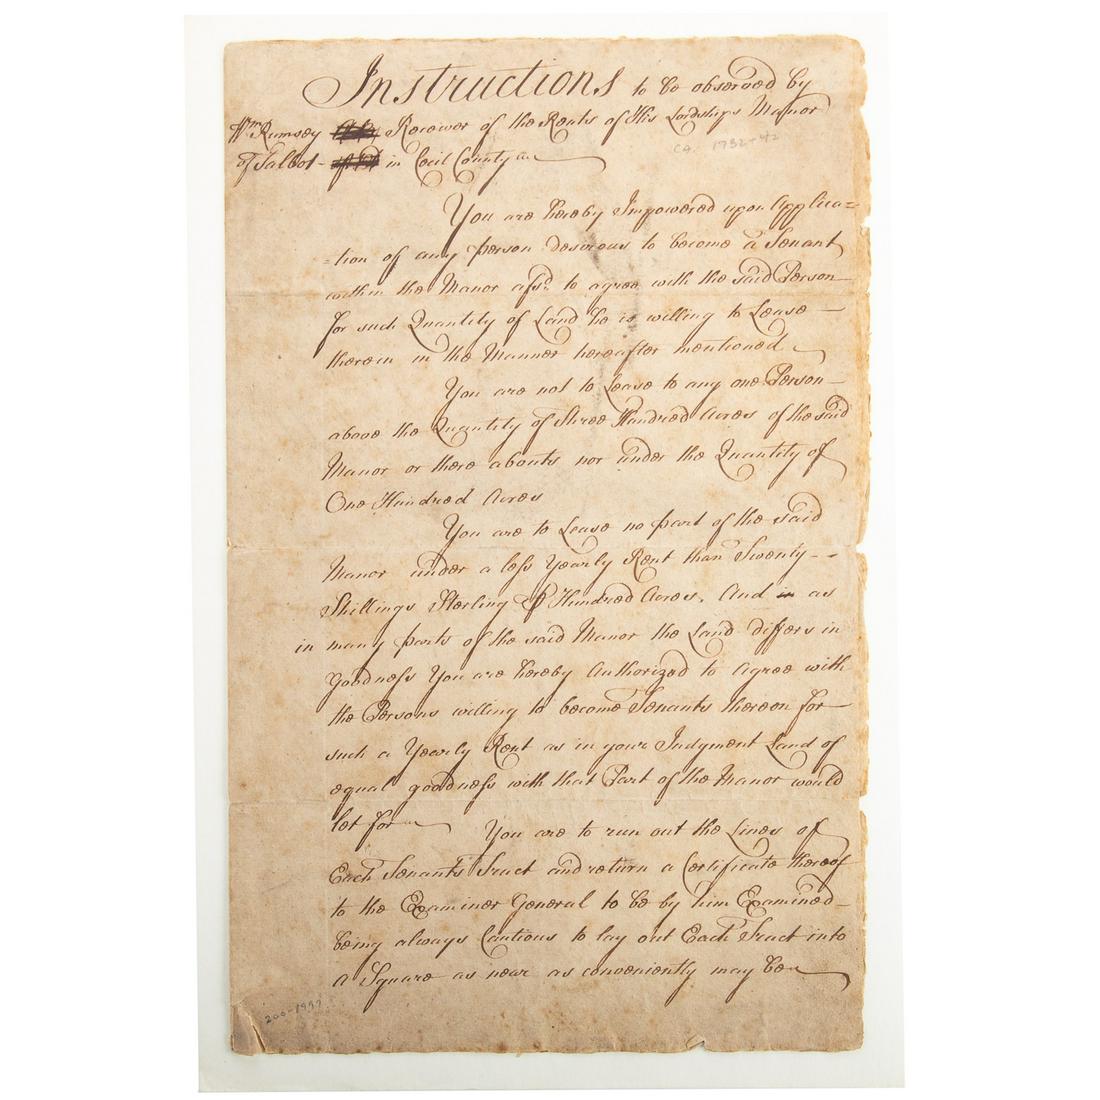 Instructions to be observed by
Wm Rumsey Receiver of the Rents of His Lordships Manor
of Talbot - in Cecil County
CA. 1732-42
You are hereby Impowered upon Applica=
=tion of any person desirous to become a Tenant
within the Manor afsd. to agree with the said Person
for such Quantity of Land he is willing to Lease
therein in the Manner hereafter mentioned
You are not to Lease to any one Person
above the Quantity of Three Hundred Acres of the said
Manor or there abouts nor under the Quantity of
One Hundred Acres
You are to Lease no part of the said
Manor under a less Yearly Rent than Twenty--
Shillings Sterling ⅌ Hundred Acres. And as
in many parts of the said Manor the Land differs in
goodness You are hereby Authorized to Agree with
the Persons willing to become Tenants thereon for
such a Yearly Rent as in your Judgment Land of
equal goodness with that Part of the Manor would
let for
You are to run out the Lines of
Each Tenants Tract and return a Certificate thereof
to the Examiner General to be by him Examined
being always Cautious to lay out Each Tract into
a Square as near as conveniently may be
200-1997